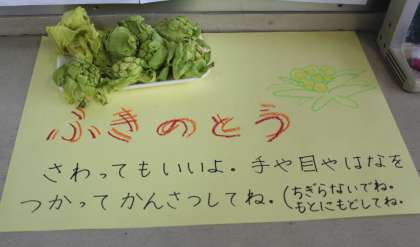 ふきのとう
さわってもいいよ。手や目やはなを
つかってかんさつしてね。(ちぎらないでね。
もとにもどしてね。